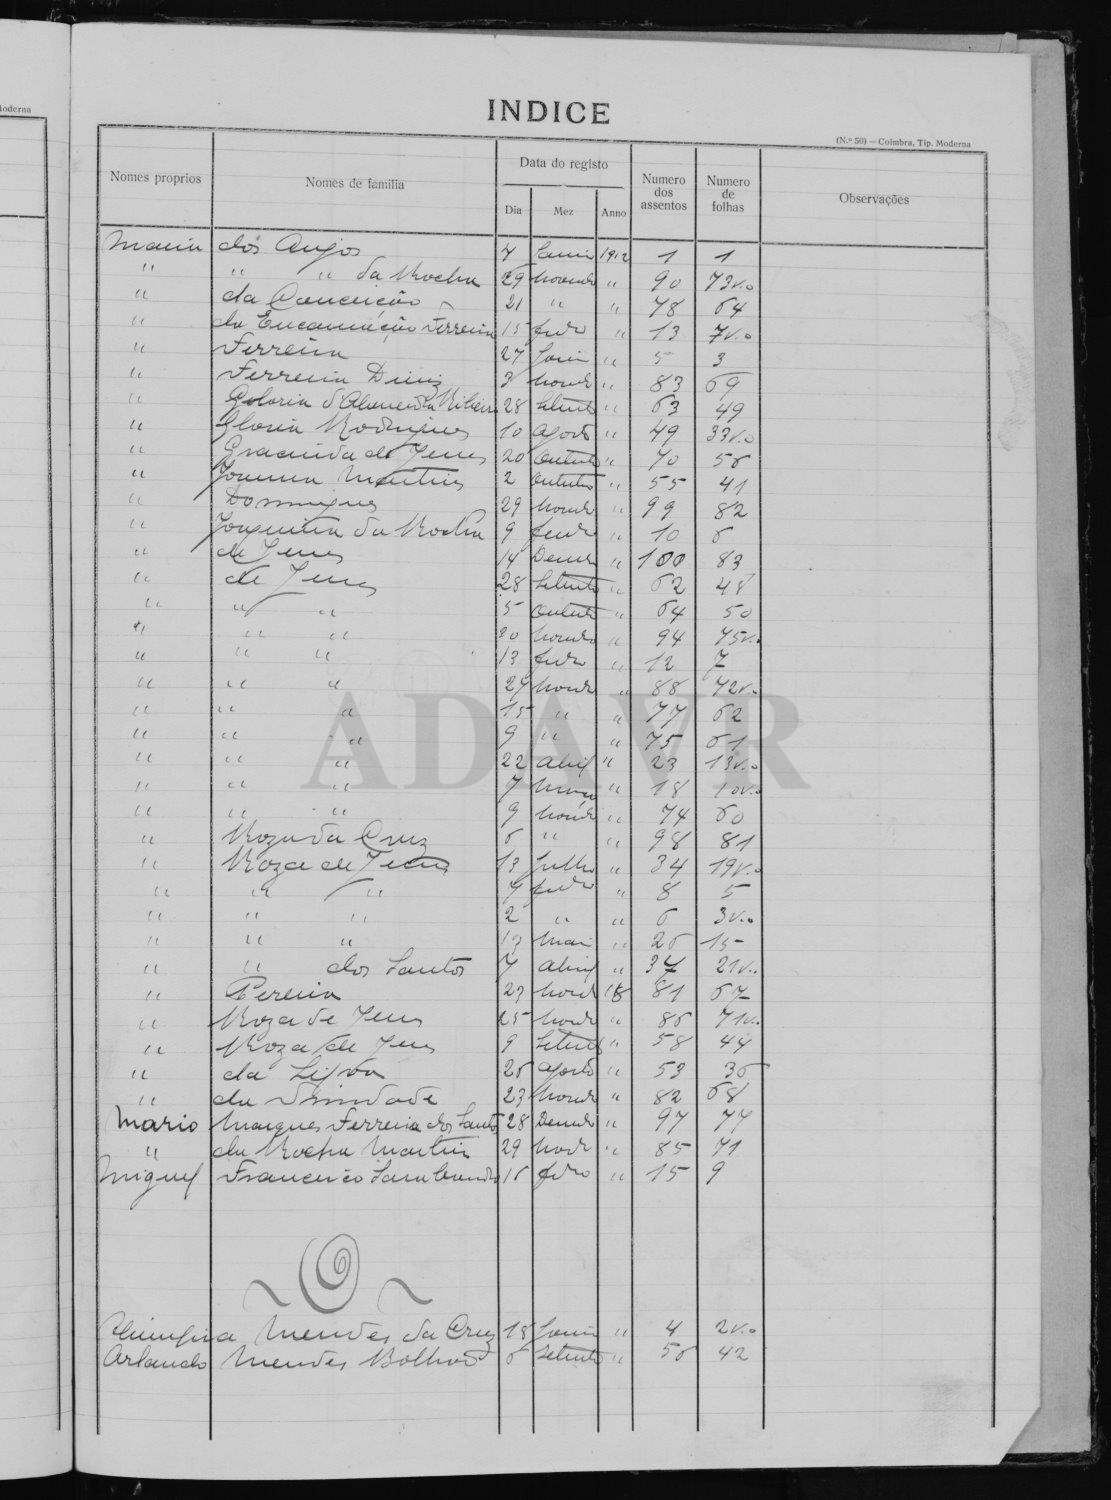 Moderna
INDICE
(N.º 50) — Coimbra, Tip. Moderna
Nomes proprios Nomes de familia Data do registo Numero dos assentos Numero de folhas Observações
Dia Mez Anno
Maria dos Anjos 7 1912 1 1
" " " da Rocha 29 " 90 73v.o
" da Conceição 21 " " 78 64
" da Encarnação Ferreira 15 " 13 7v.o
" Ferreira 27 " 5 3
" Ferreira Diniz 3 " 83 69
" Gloria d'Almeida Ribeiro 28 " 63 49
" Gloria Rodrigues 10 Agosto " 49 33v.o
" Gracinda de Jesus 20 Outubro " 70 56
" Joanna Martins 2 Outubro " 55 41
" Domingues 29 " 99 82
" Joaquina da Rocha 9 " 10 6
" de Jesus 14 " 100 83
" de Jesus 28 " 62 48
" " " 5 Outubro " 64 50
" " " 20 " 94 75v.o
" " " 13 " 12 7
" " " 27 " 88 72v.o
" " " 15 " " 77 62
" " " 9 " " 75 61
" " " 22 Abril " 23 13v.o
" " " 7 " 18 10v.o
" " " 9 " 74 60
" Roza da Cruz 6 " " 98 81
" Roza de Jesus 13 Julho " 34 19v.o
" " " 7 " 8 5
" " " 2 " " 6 3v.o
" " " 13 " 26 15
" " dos Santos 7 Abril " 37 21v.o
" Pereira 23 81 67
" Roza de Jesus 25 " 86 71v.o
" Roza de Jesus 9 " 58 44
" da Silva 26 Agosto " 53 36
" da Trindade 23 " 82 68
Mario Marques Ferreira dos Santos 28 " 97 77
" da Rocha Martins 29 " 85 71
Miguel Francisco 16 " 15 9
Olimpia Mendes da Cruz 18 " 4 2v.o
Orlando Mendes Bolhão 6 " 56 42
ADAVR